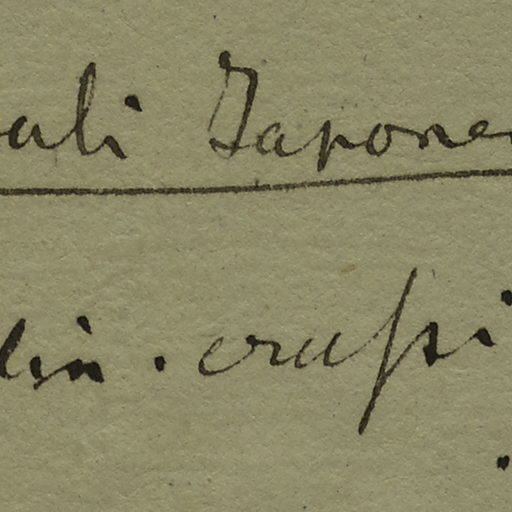 ali Japone
lin. crassi